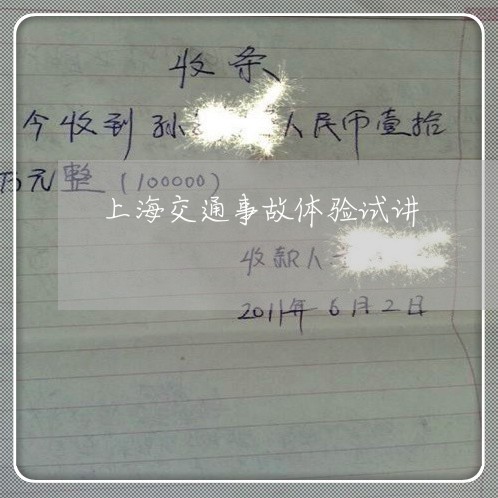 收条
今收到孙 人民币壹拾
万元整(100000)
上海交通事故体验试讲
收款人
2011年6月2日